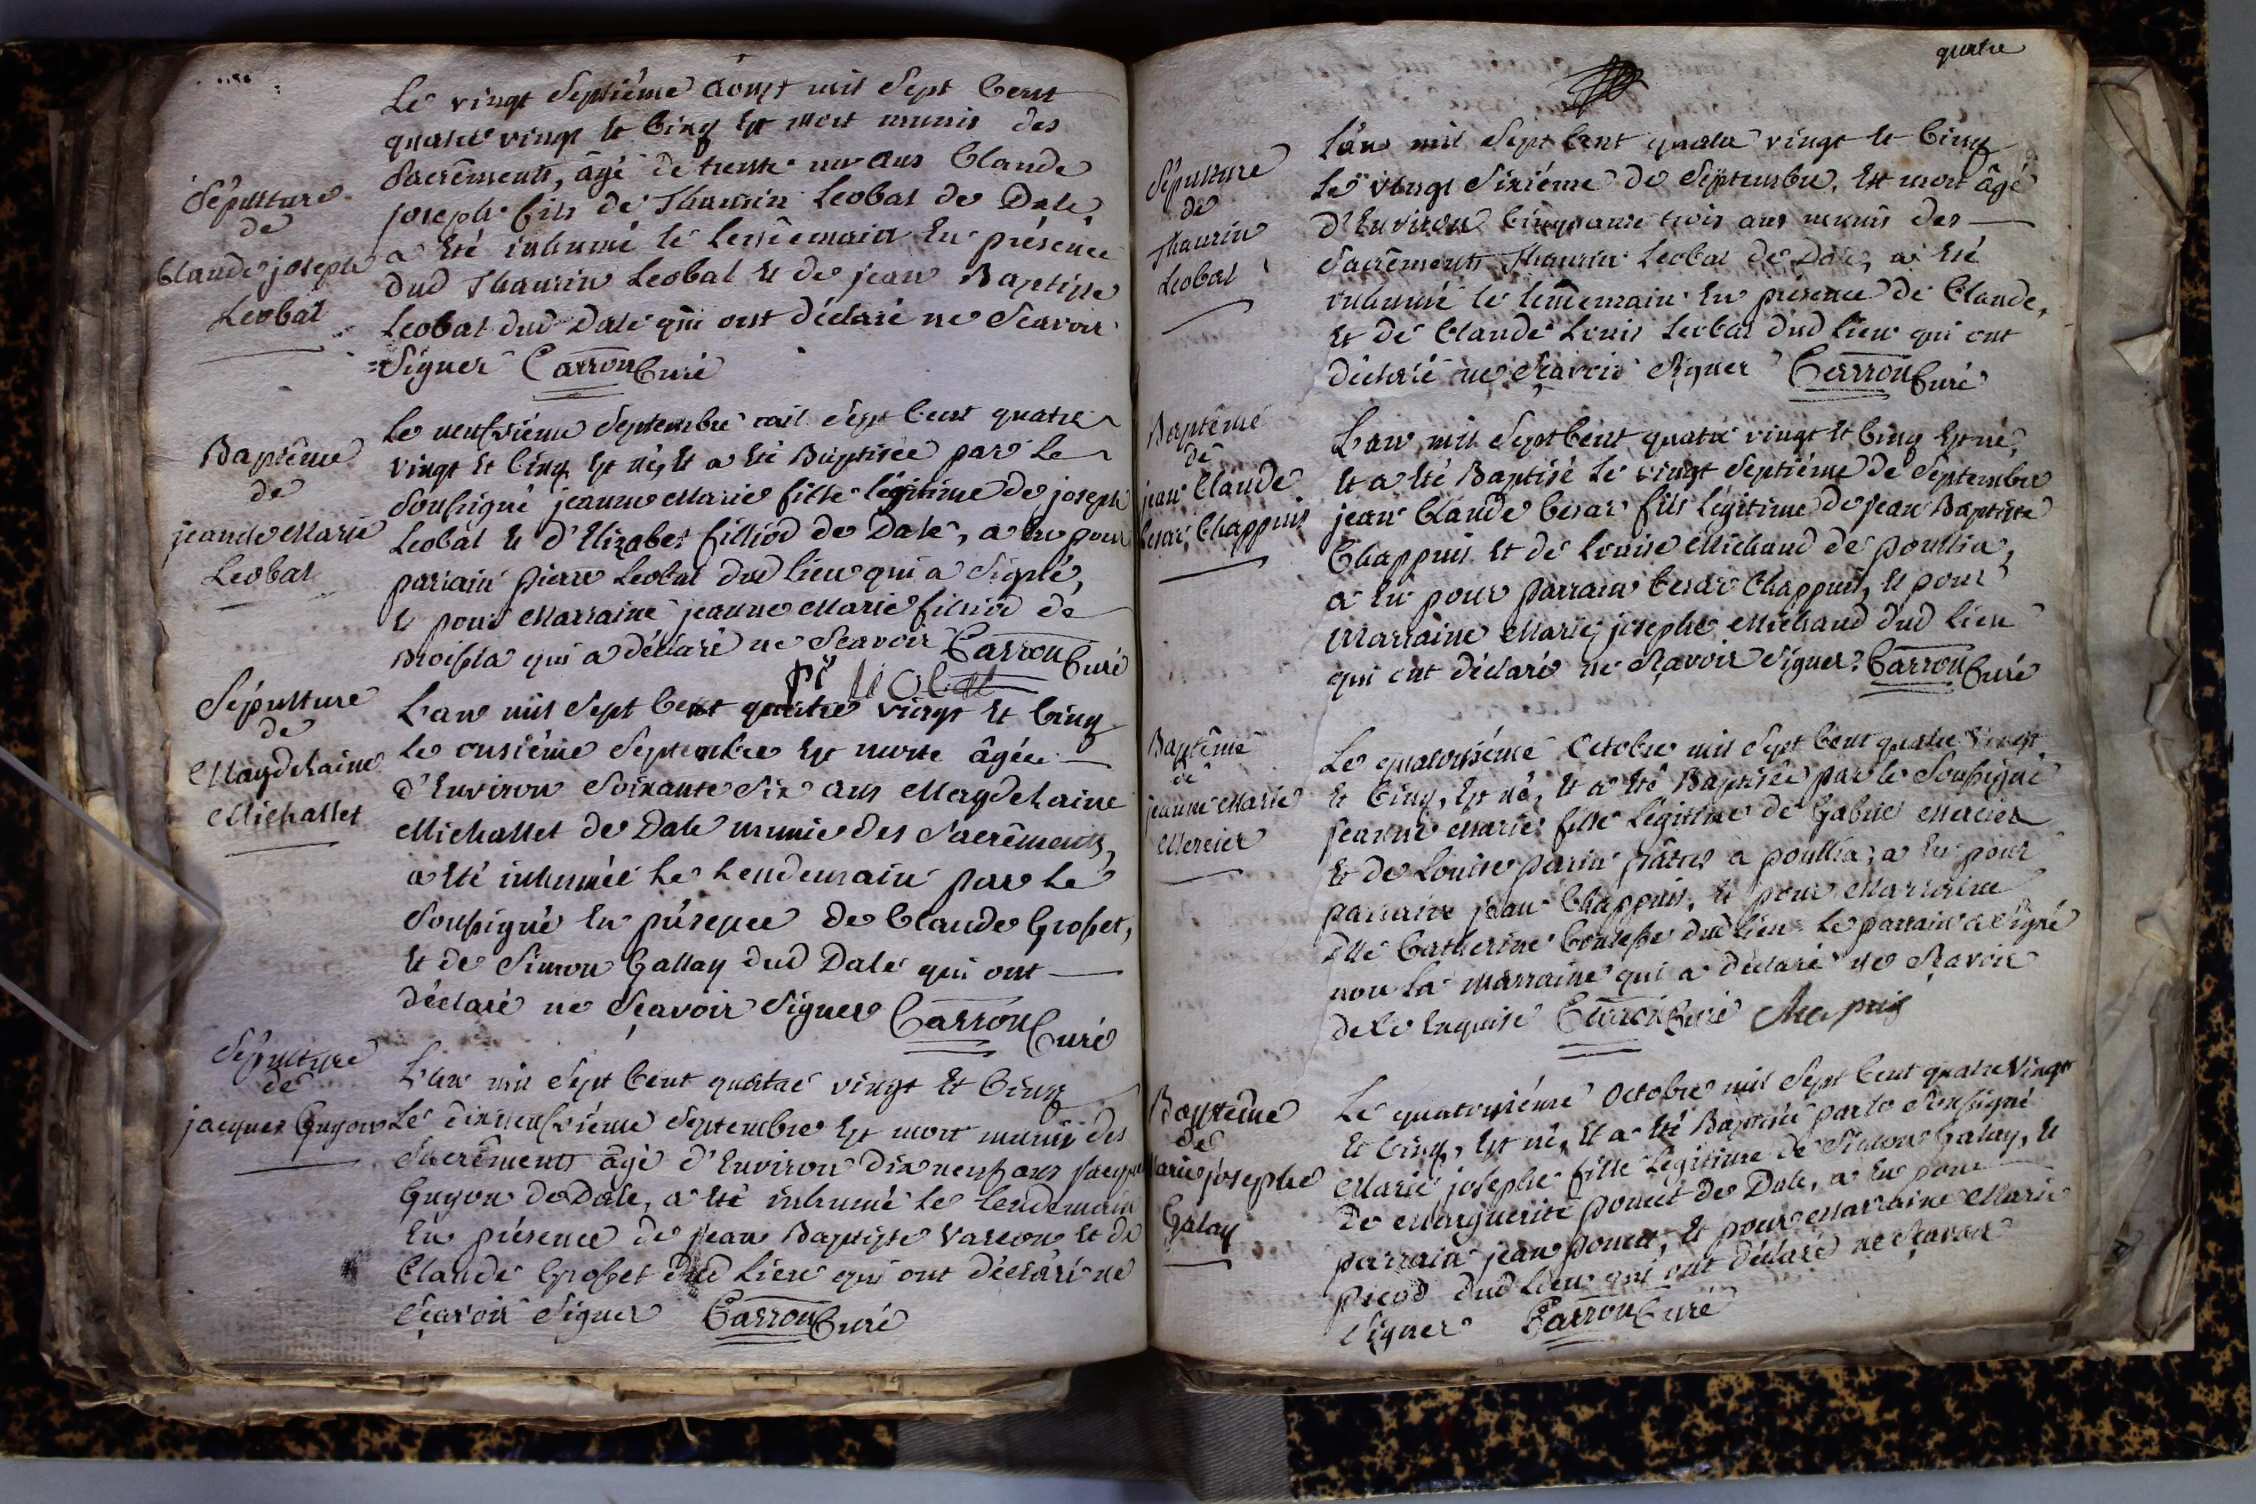 Le vingt septiéme Aoust mil sept Cent
quatre vingt Et Cinq Est mort munis des
Sacrêments, âgé de trente un ans Claude
joseph fils de Thaurin Leobal de Dale,
a Eté inhumé le lendemain En présence
dud Thaurin Leobal Et de jean Baptiste
Leobal dud Dale qui ont déclaré ne Scavoir
Signer Carron Curé
Sépulture
de
Claude joseph
Leobal
Le neufviéme Septembre mil Sept Cent quatre
vingt Et Cinq Est né, Et a Eté Baptisée par Le
Soussigné jeanne Marie fille légitime de joseph
Leobal Et d'Elizabet filliod de Dale, a Eu pour
parrain pierre Leobal dud lieu qui a Signé,
Et pour Marraine jeanne Marie filliod de
qui a déclaré ne Scavoir Carron Curé
Baptême
de
jeanne Marie
Leobal
L'an mil Sept Cent quatre vingt Et Cinq
Le onsiéme Septembre Est morte âgée
d'Environ Soixante Six ans Magdelaine
Michallet de Dale munie des Sacrêments,
a Eté inhumée Le Lendemain par Le
Soussigné En présence de Claude Grosset,
Et de Simon Gallay dud Dale qui ont
déclaré ne Sçavoir Signer Carron Curé
Sépulture
de
Magdelaine
Michallet
L'an mil Sept Cent quatre vingt Et Cinq
Le dixneufviéme Septembre Est mort munis des
Sacrêments âgé d'Environ dixneuf ans jacques
Guyon de Dale, a Eté inhumé le lendemain
En présence de jean Baptiste Et de
Claude Grosset dud Lieu qui ont déclaré ne
Sçavoir Signer Carron Curé
Sépulture
de
jacques Guyon
quatre
L'an mil Sept Cent quatre vingt Et Cinq
Le vingt Sixiéme de Septembre, Est mort âgé
d'Environ Cinquante trois ans munis des
Sacrêments Thaurin Leobal de Dale, a Eté
inhumé le lendemain En présence de Claude,
Et de Claude Louis Leobal dud lieu qui ont
déclaré ne Sçavoir Signer Carron Curé
Sépulture
de
Thaurin
Leobal
L'an mil Sept Cent quatre vingt Et Cinq Est né,
Et a Eté Baptisé Le vingt Septiéme de Septembre
jean Claude Cesar fils Légitime de jean Baptiste
Chappuis Et de Louise Michaud de poullia,
a Eu pour parrain Cesar Chappuis, Et pour
Marraine Marie josephe Michaud dud Lieu
qui ont déclaré ne Sçavoir Signer Carron Curé
Baptême
de
jean Claude
Cesar Chappuis
Le quatorsiéme Octobre mil Sept Cent quatre vingt
Et Cinq, Est né, Et a Eté Baptisée par le Soussigné
jeanne Marie fille Légitime de Gabriel Mercier
Et de Louise perrin à poullia, a Eu pour
parrain jean Chappuis, Et pour Marraine
Dlle Catherine dud Lieu Le parrain a Signé
non La marraine qui a déclaré ne Sçavoir
de Ce Enquise Carron Curé Chapuis
Baptême
de
jeanne Marie
Mercier
Le quatorsiéme Octobre mil Sept Cent quatre vingt
Et Cinq, Est né, Et a Eté Baptisée par le Soussigné
Marie josephe fille Légitime de Simon Galay, Et
de Marguerite poncet de Dale, a Eu pour
parrain jean poncet, Et pour Marraine Marie
picod dud Lieu qui ont déclaré ne Sçavoir
Signer Carron Curé
Baptême
de
Marie josephe
Galay